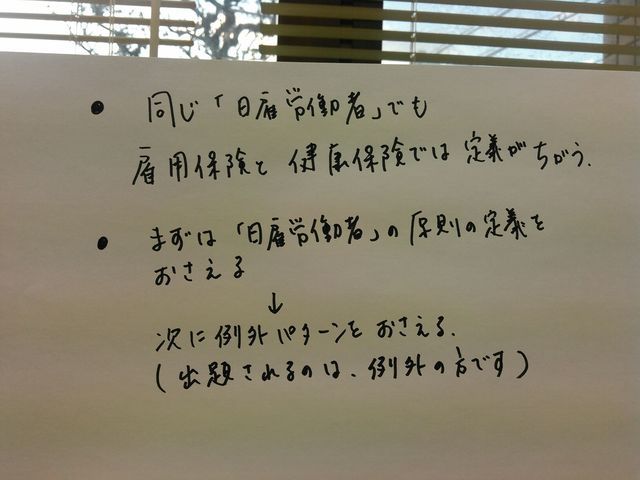 ● 同じ「日雇労働者」でも
雇用保険と健康保険では定義がちがう.
● まずは「日雇労働者」の原則の定義を
おさえる
↓
次に例外パターンをおさえる.
(出題されるのは、例外の方です)